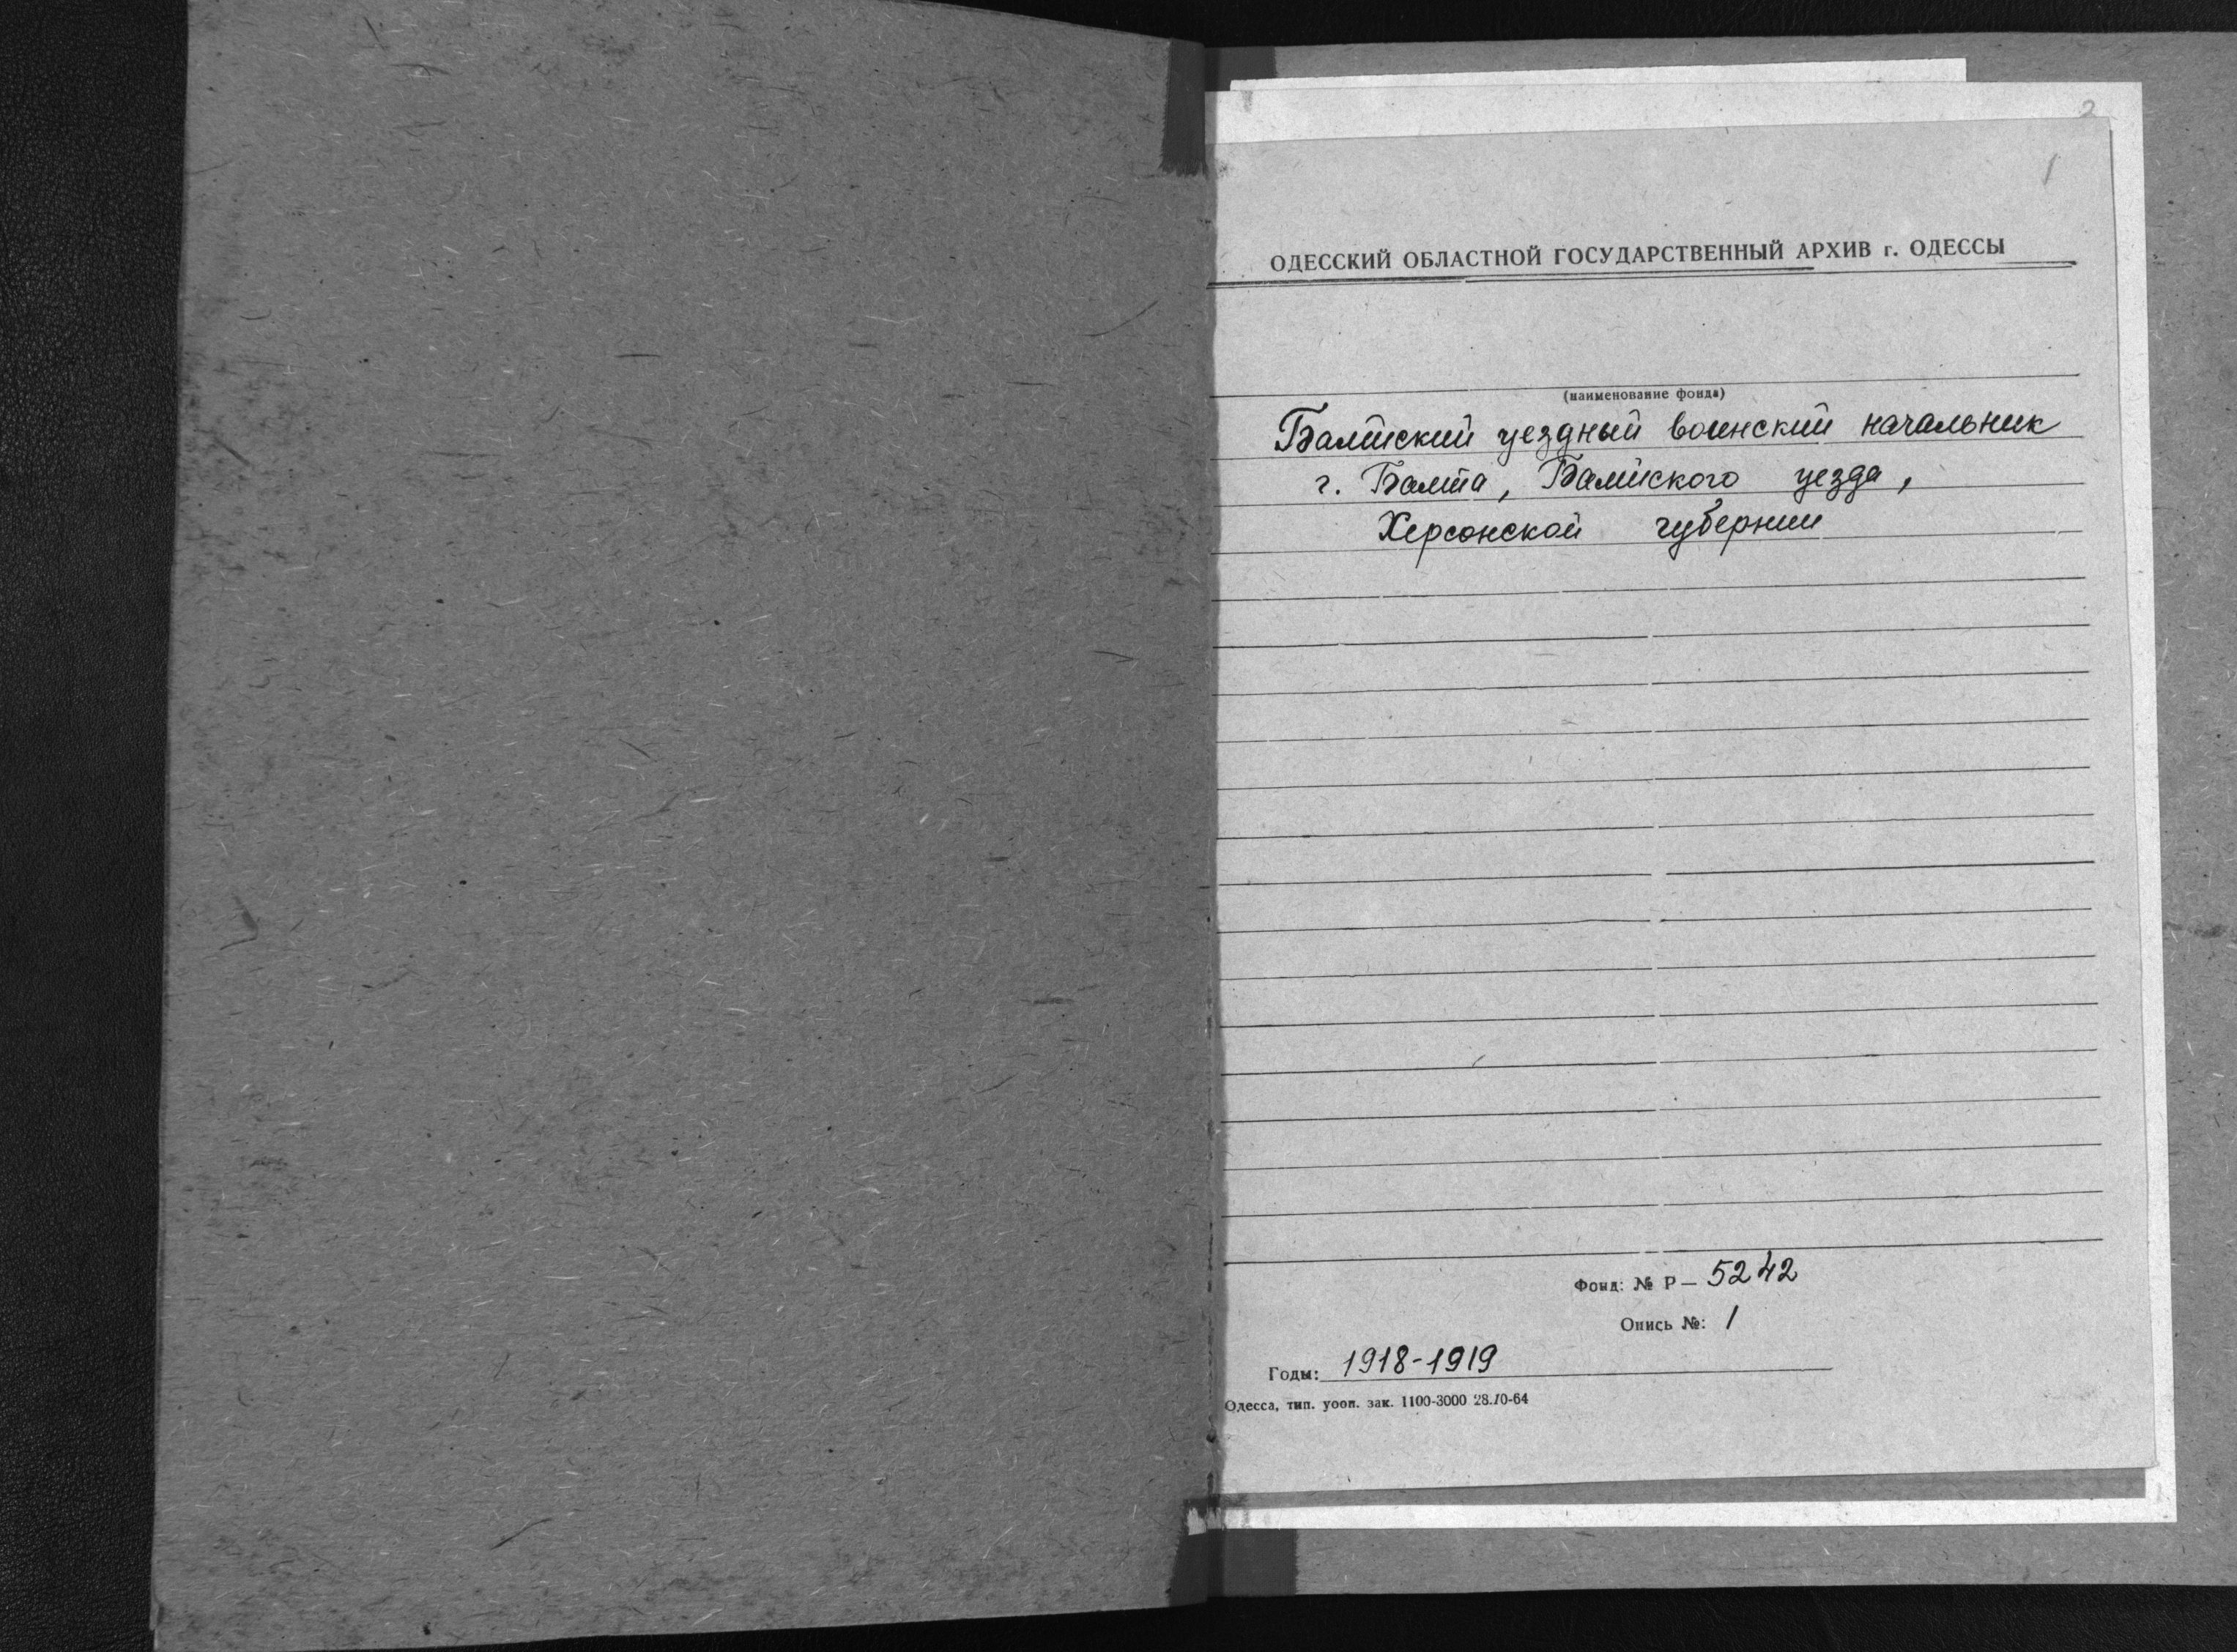 2
1
ОДЕССКИЙ ОБЛАСТНОЙ ГОСУДАРСТВЕННЫЙ АРХИВ г. ОДЕССЫ
(наименование фонда)
Балтский уездный воинский начальник
г. Балта, Балтского уезда,
Херсонской губернии
Фонд: № Р— 5242
Опись №: 1
Годы: 1918-1919
Одесса, тип. уооп. зак. 1100-3000 28.10-64